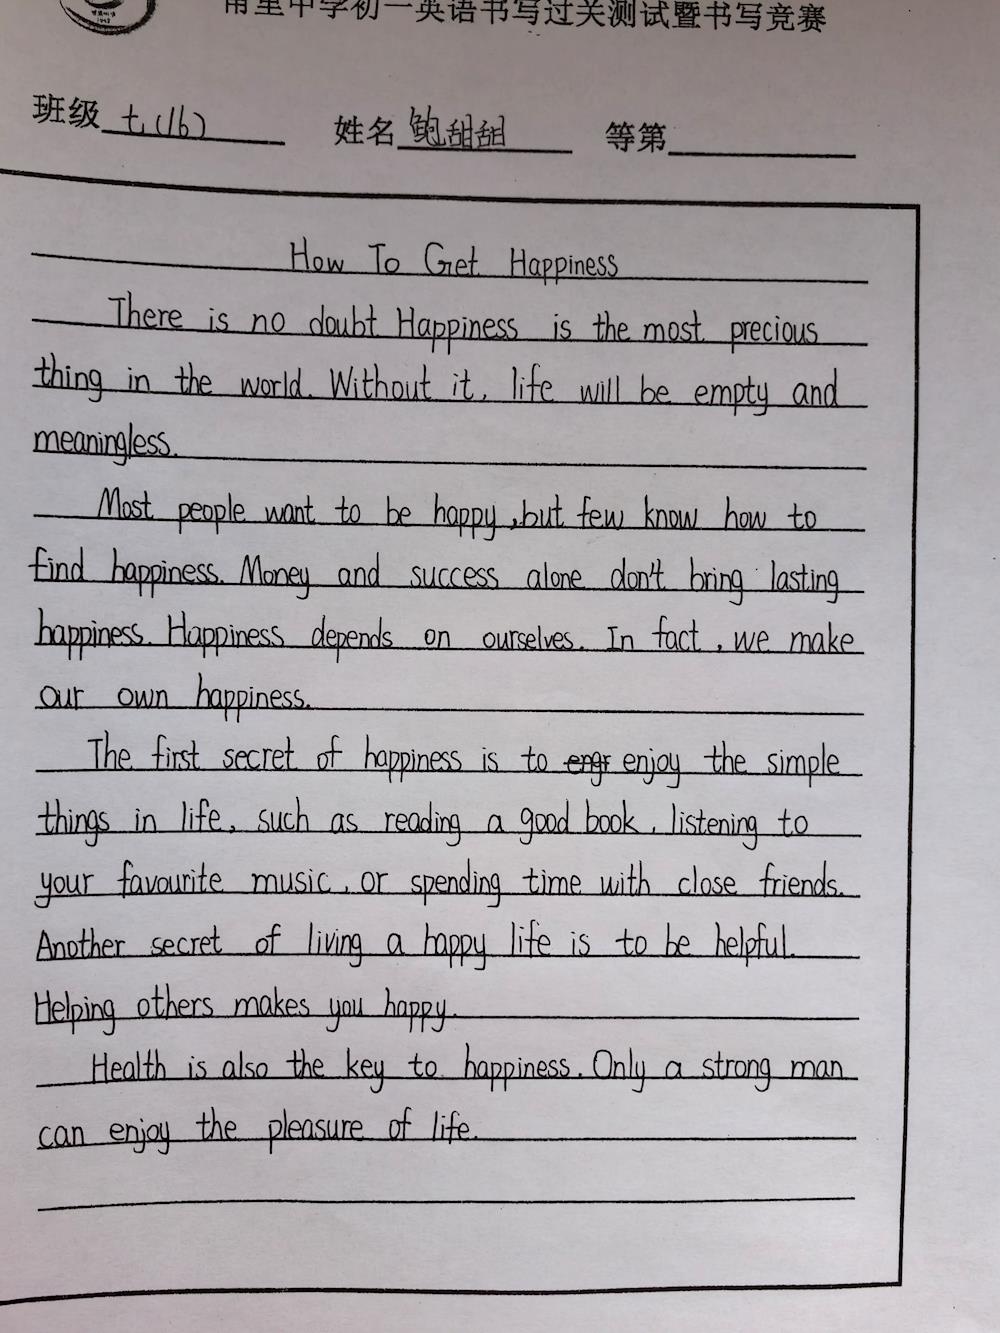 甪里中学初一英语书写过关测试暨书写竞赛
班级 七(16) 姓名 鲍甜甜 等第
How To Get Happiness
There is no doubt Happiness is the most precious
thing in the world. Without it, life will be empty and
meaningless.
Most people want to be happy, but few know how to
find happiness. Money and success alone don't bring lasting
happiness. Happiness depends on ourselves. In fact, we make
our own happiness.
The first secret of happiness is to engr enjoy the simple
things in life, such as reading a good book, listening to
your favourite music, or spending time with close friends.
Another secret of living a happy life is to be helpful.
Helping others makes you happy.
Health is also the key to happiness. Only a strong man
can enjoy the pleasure of life.